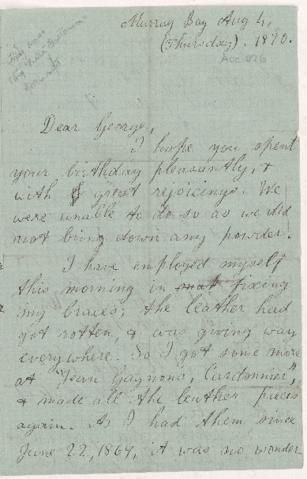 Murray Bay Aug 4,
(Thursday). 1870.
Dear George,
I hope you spent
your birthday pleasantly, &
with great rejoicings. We
were unable to do so as we did
not bring down any powder.
I have employed myself
this morning in fixing
my braces; the leather had
got rotten, & was giving way
everywhere. So I got some more
at "Jean Gagnons, Cordonnier",
& made all the leather pieces
again. As I had them since
June 22, 1867, it was no wonder